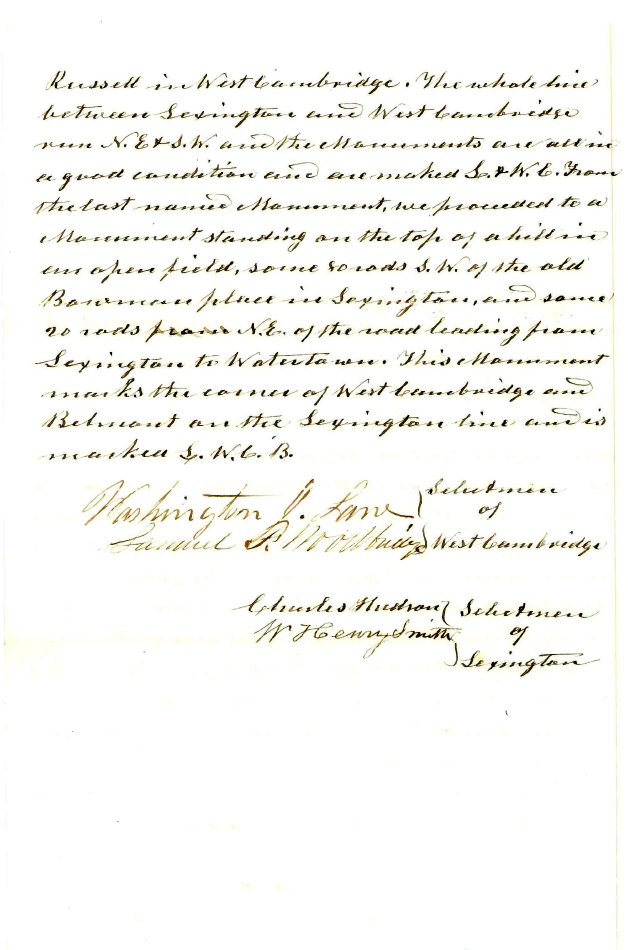 Russell in West Cambridge. The whole line
between Lexington and West Cambridge
run N.E & S.W. and the Monuments are all in
a good condition and are maked L. & W. C. From
the last named Monument, we proceeded to a
Monument standing on the top of a hill in
an open field, some 80 rods S.W. of the old
Bowman place in Lexington, and some
20 rods from N.E. of the road leading from
Lexington to Watertown. This Monument
marks the corner of West Cambridge and
Belmont on the Lexington line and is
marked L. W. C. B.
Washington J. Lane } Selectmen
of
Samuel P. Woodbridge } West Cambridge
Charles Hudson } Selectmen
W Henry Smith } of
Lexington